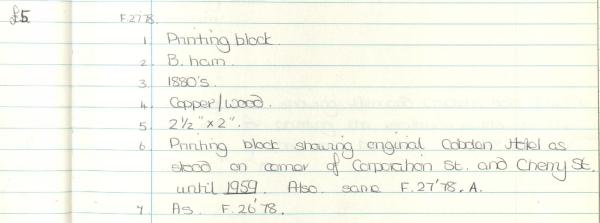 £5 F.27'78.
1 Printing block.
2. B.ham.
3. 1880's.
4. Copper/wood.
5. 2½" x 2".
6 Printing block showing original Cobden Hotel as
stood on corner of Corporation St. and Cherry St.
until 1959. Also same F.27'78.A.
7 As F.26'78.